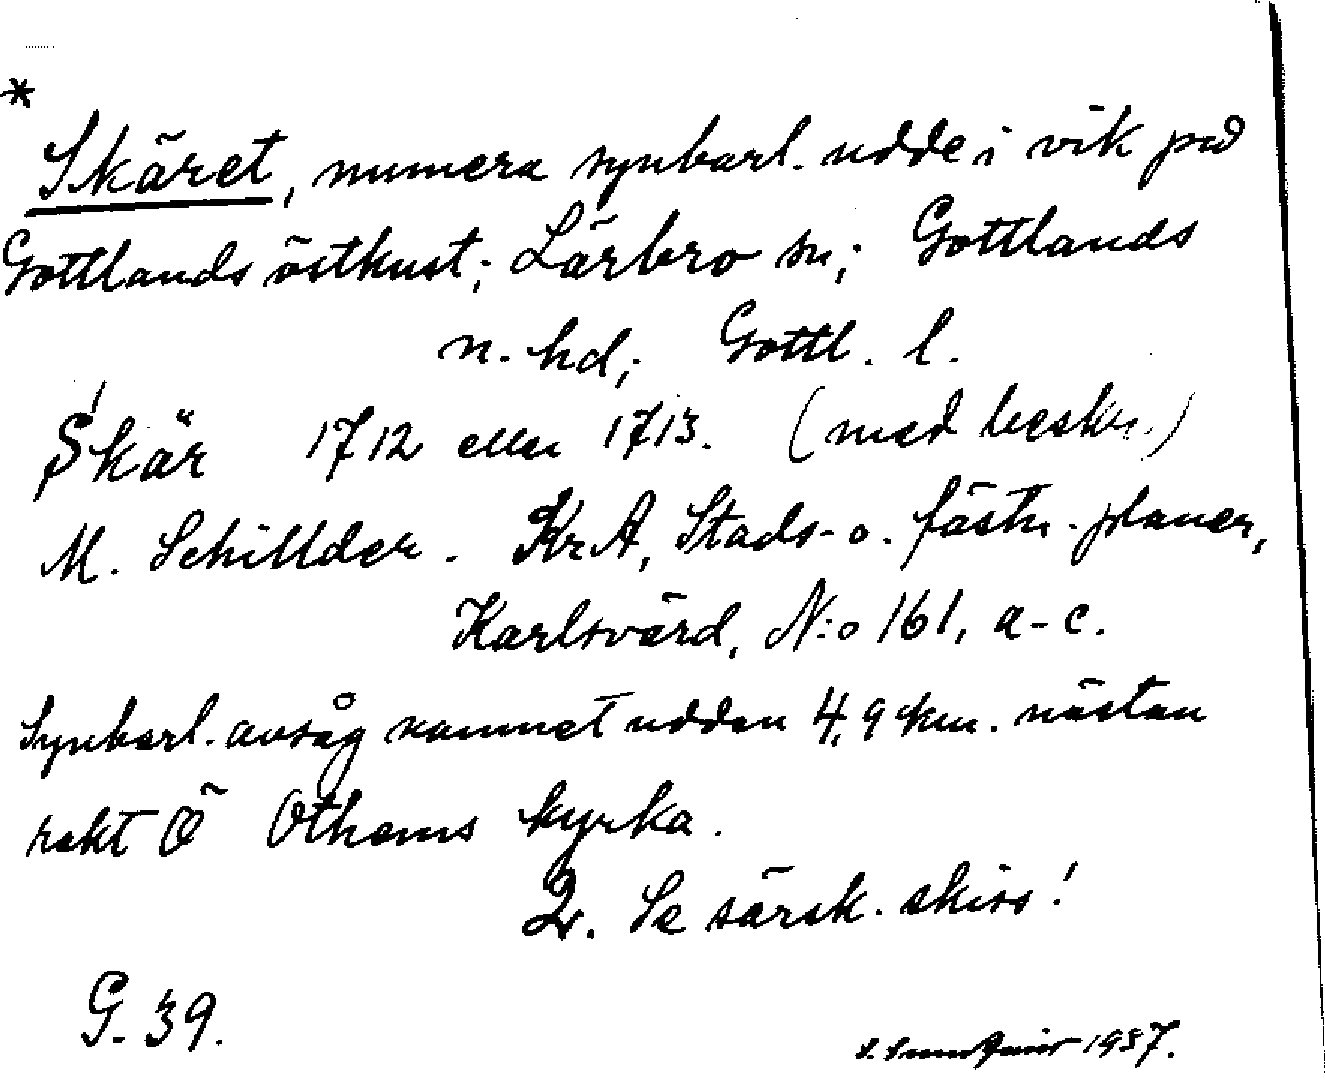 *
Skäret, numera synbarl. udde i vik på
Gottlands östkust; Lärbro sn; Gottlands
n. hd; Gottl. l.
Skär 1712 eller 1713. (med beskr.)
M. Schillder. Kr A, Stads- o. fästn.-planer,
Karlsvärd, N:o 161, a-c.
Synbarl. avsåg namnet udden 4,9 km. nästan
rakt Ö Othems kyrka.
Se särsk. skiss!
G. 39.
1937.